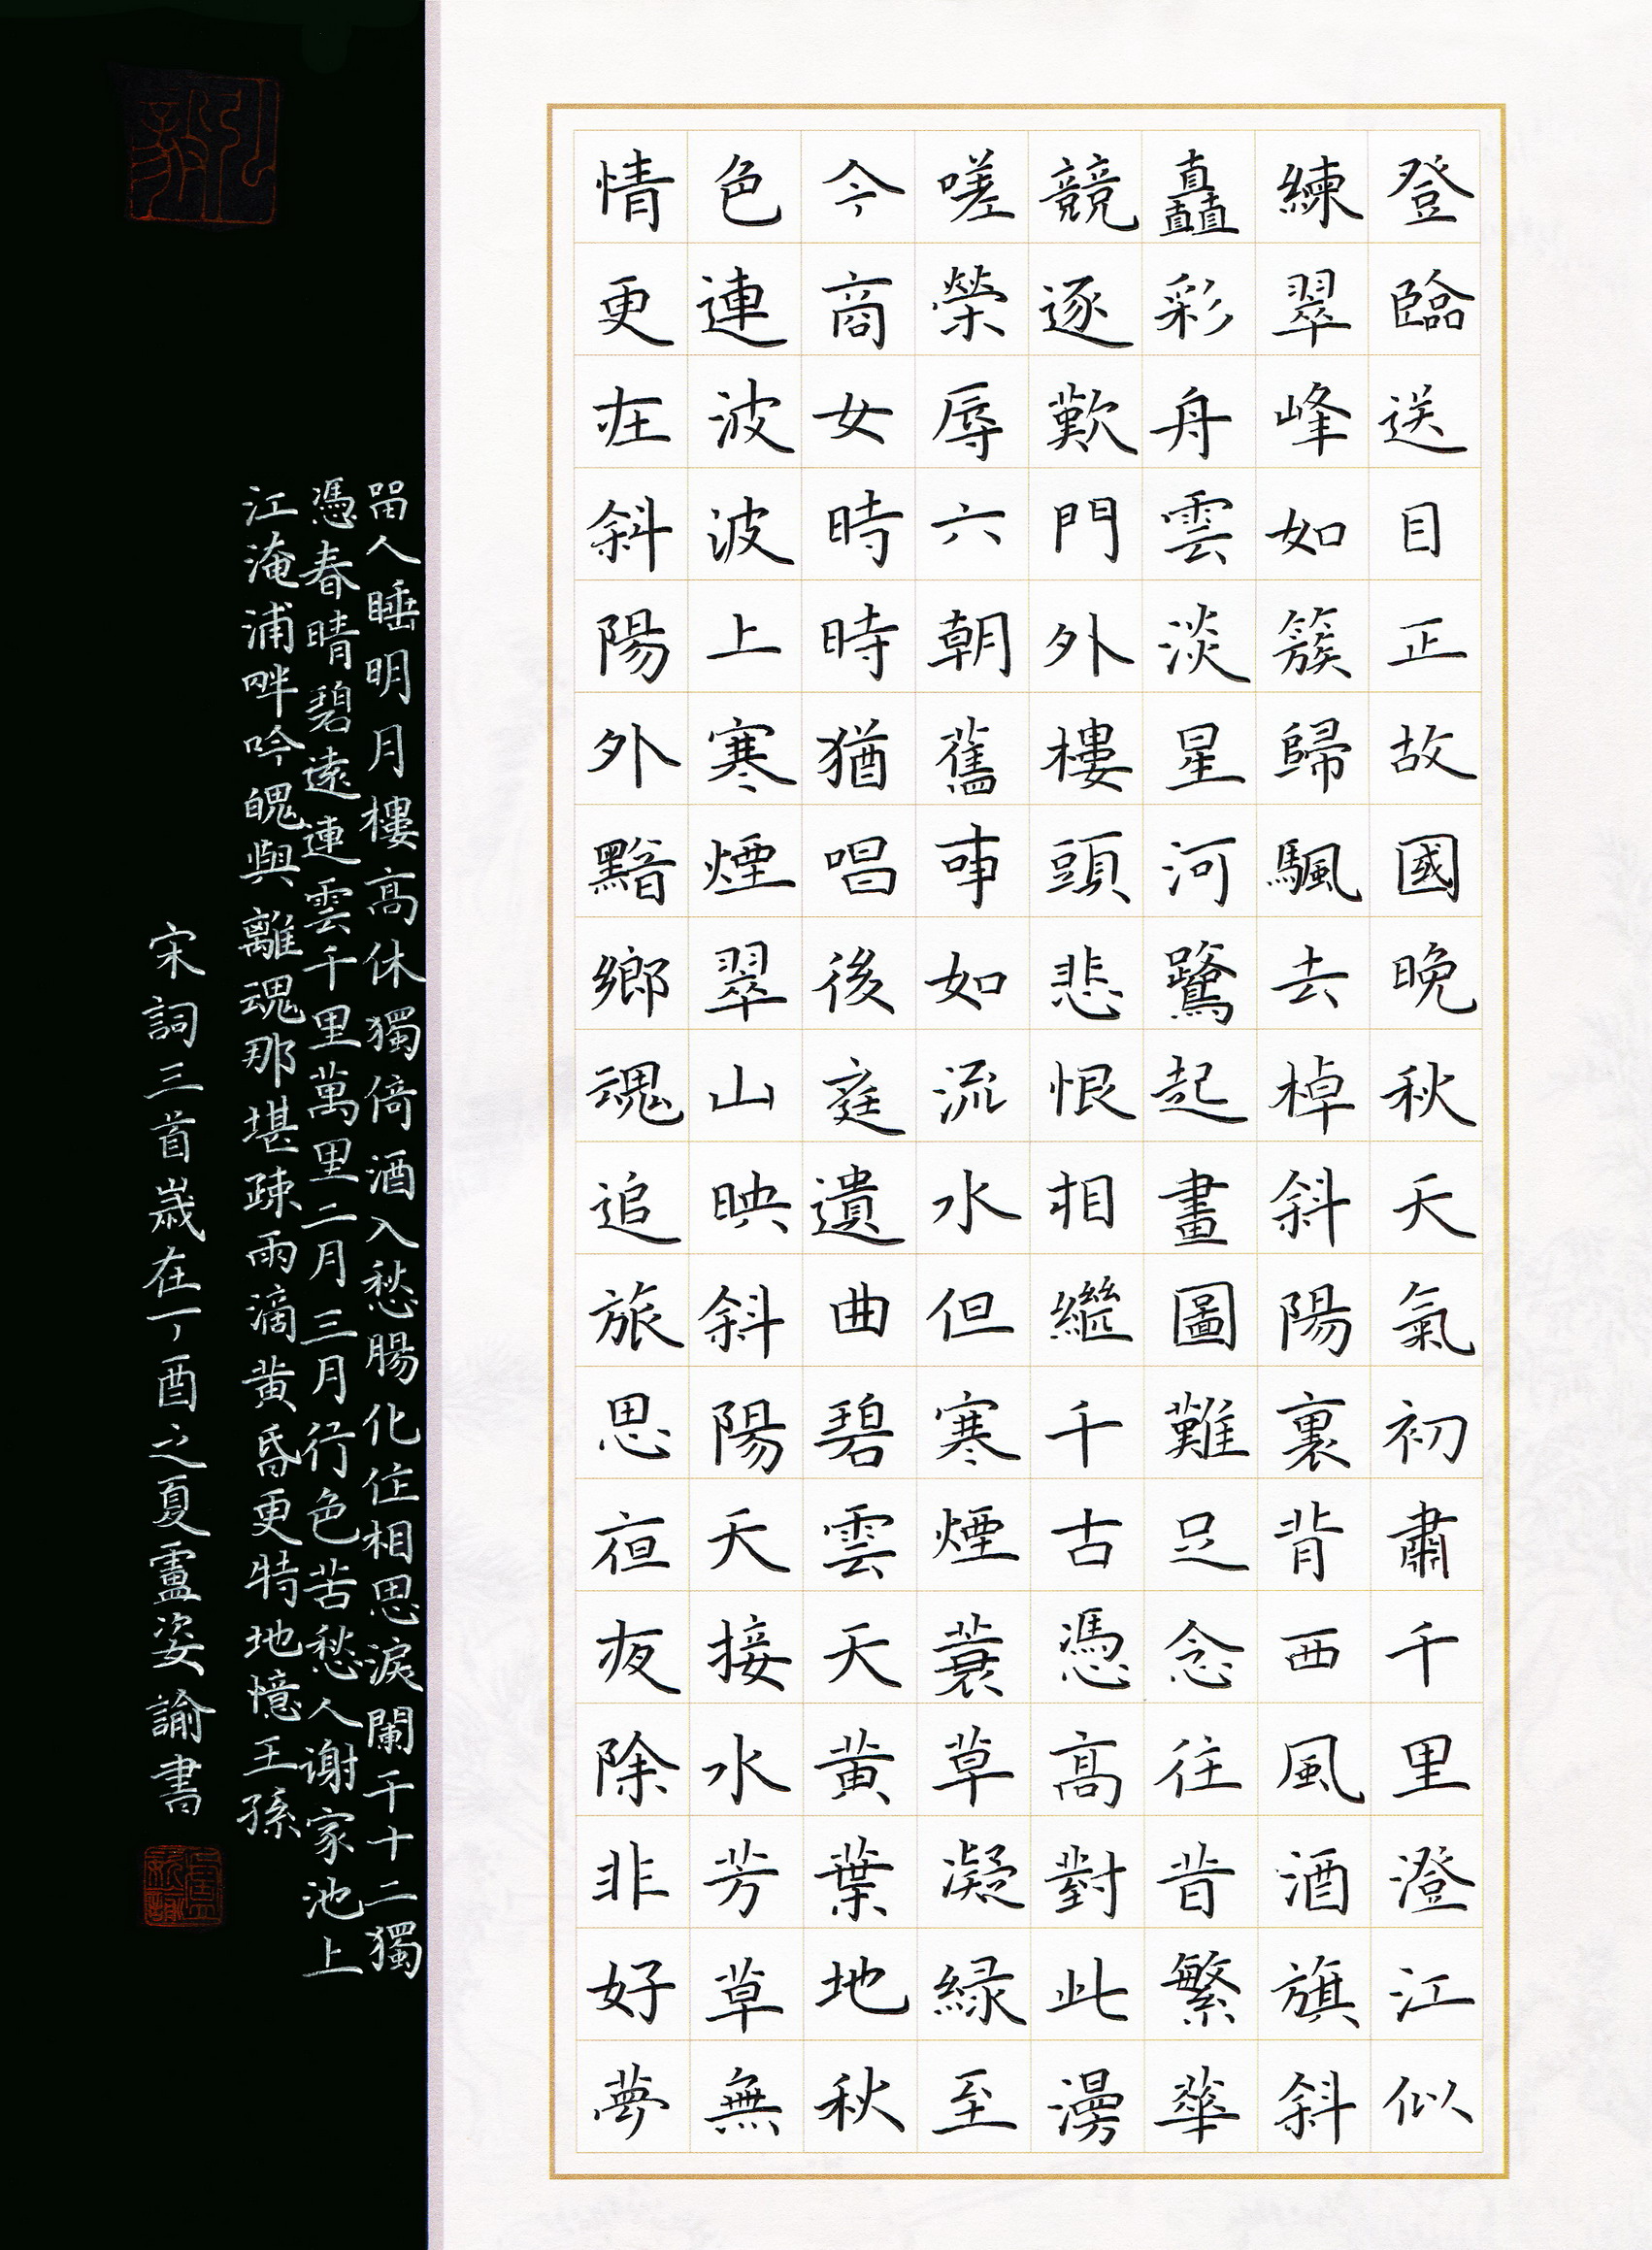 登臨送目正故國晚秋天氣初肅千里澄江似
練翠峰如簇歸颿去棹斜陽裏背西風酒旗斜
矗彩舟雲淡星河鷺起畫圖難足念往昔繁華
競逐歎門外樓頭悲恨相繼千古憑高對此漫
嗟榮辱六朝舊事如流水但寒煙蓑草凝綠至
今商女時時猶唱後庭遺曲碧雲天黃葉地秋
色連波波上寒煙翠山映斜陽天接水芳草無
情更在斜陽外黯鄉魂追旅思夜夜除非好夢
留人睡明月樓高休獨倚酒入愁腸化作相思淚闌干十二獨
憑春晴碧遠連雲千里萬里二月三月行色苦愁人謝家池上
江淹浦畔吟魄與離魂那堪疎雨滴黃昏更特地憶王孫
宋詞三首歲在丁酉之夏盧姿諭書